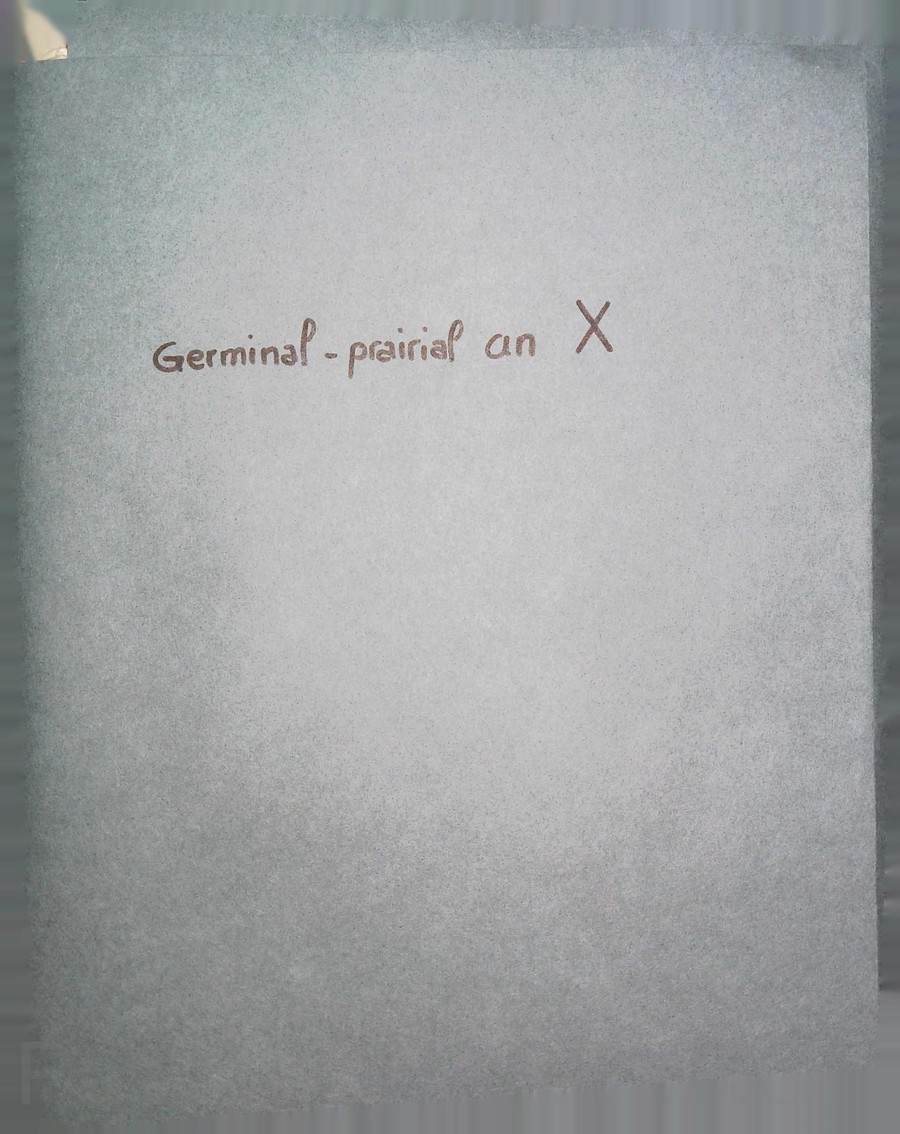 Germinal - prairial an X